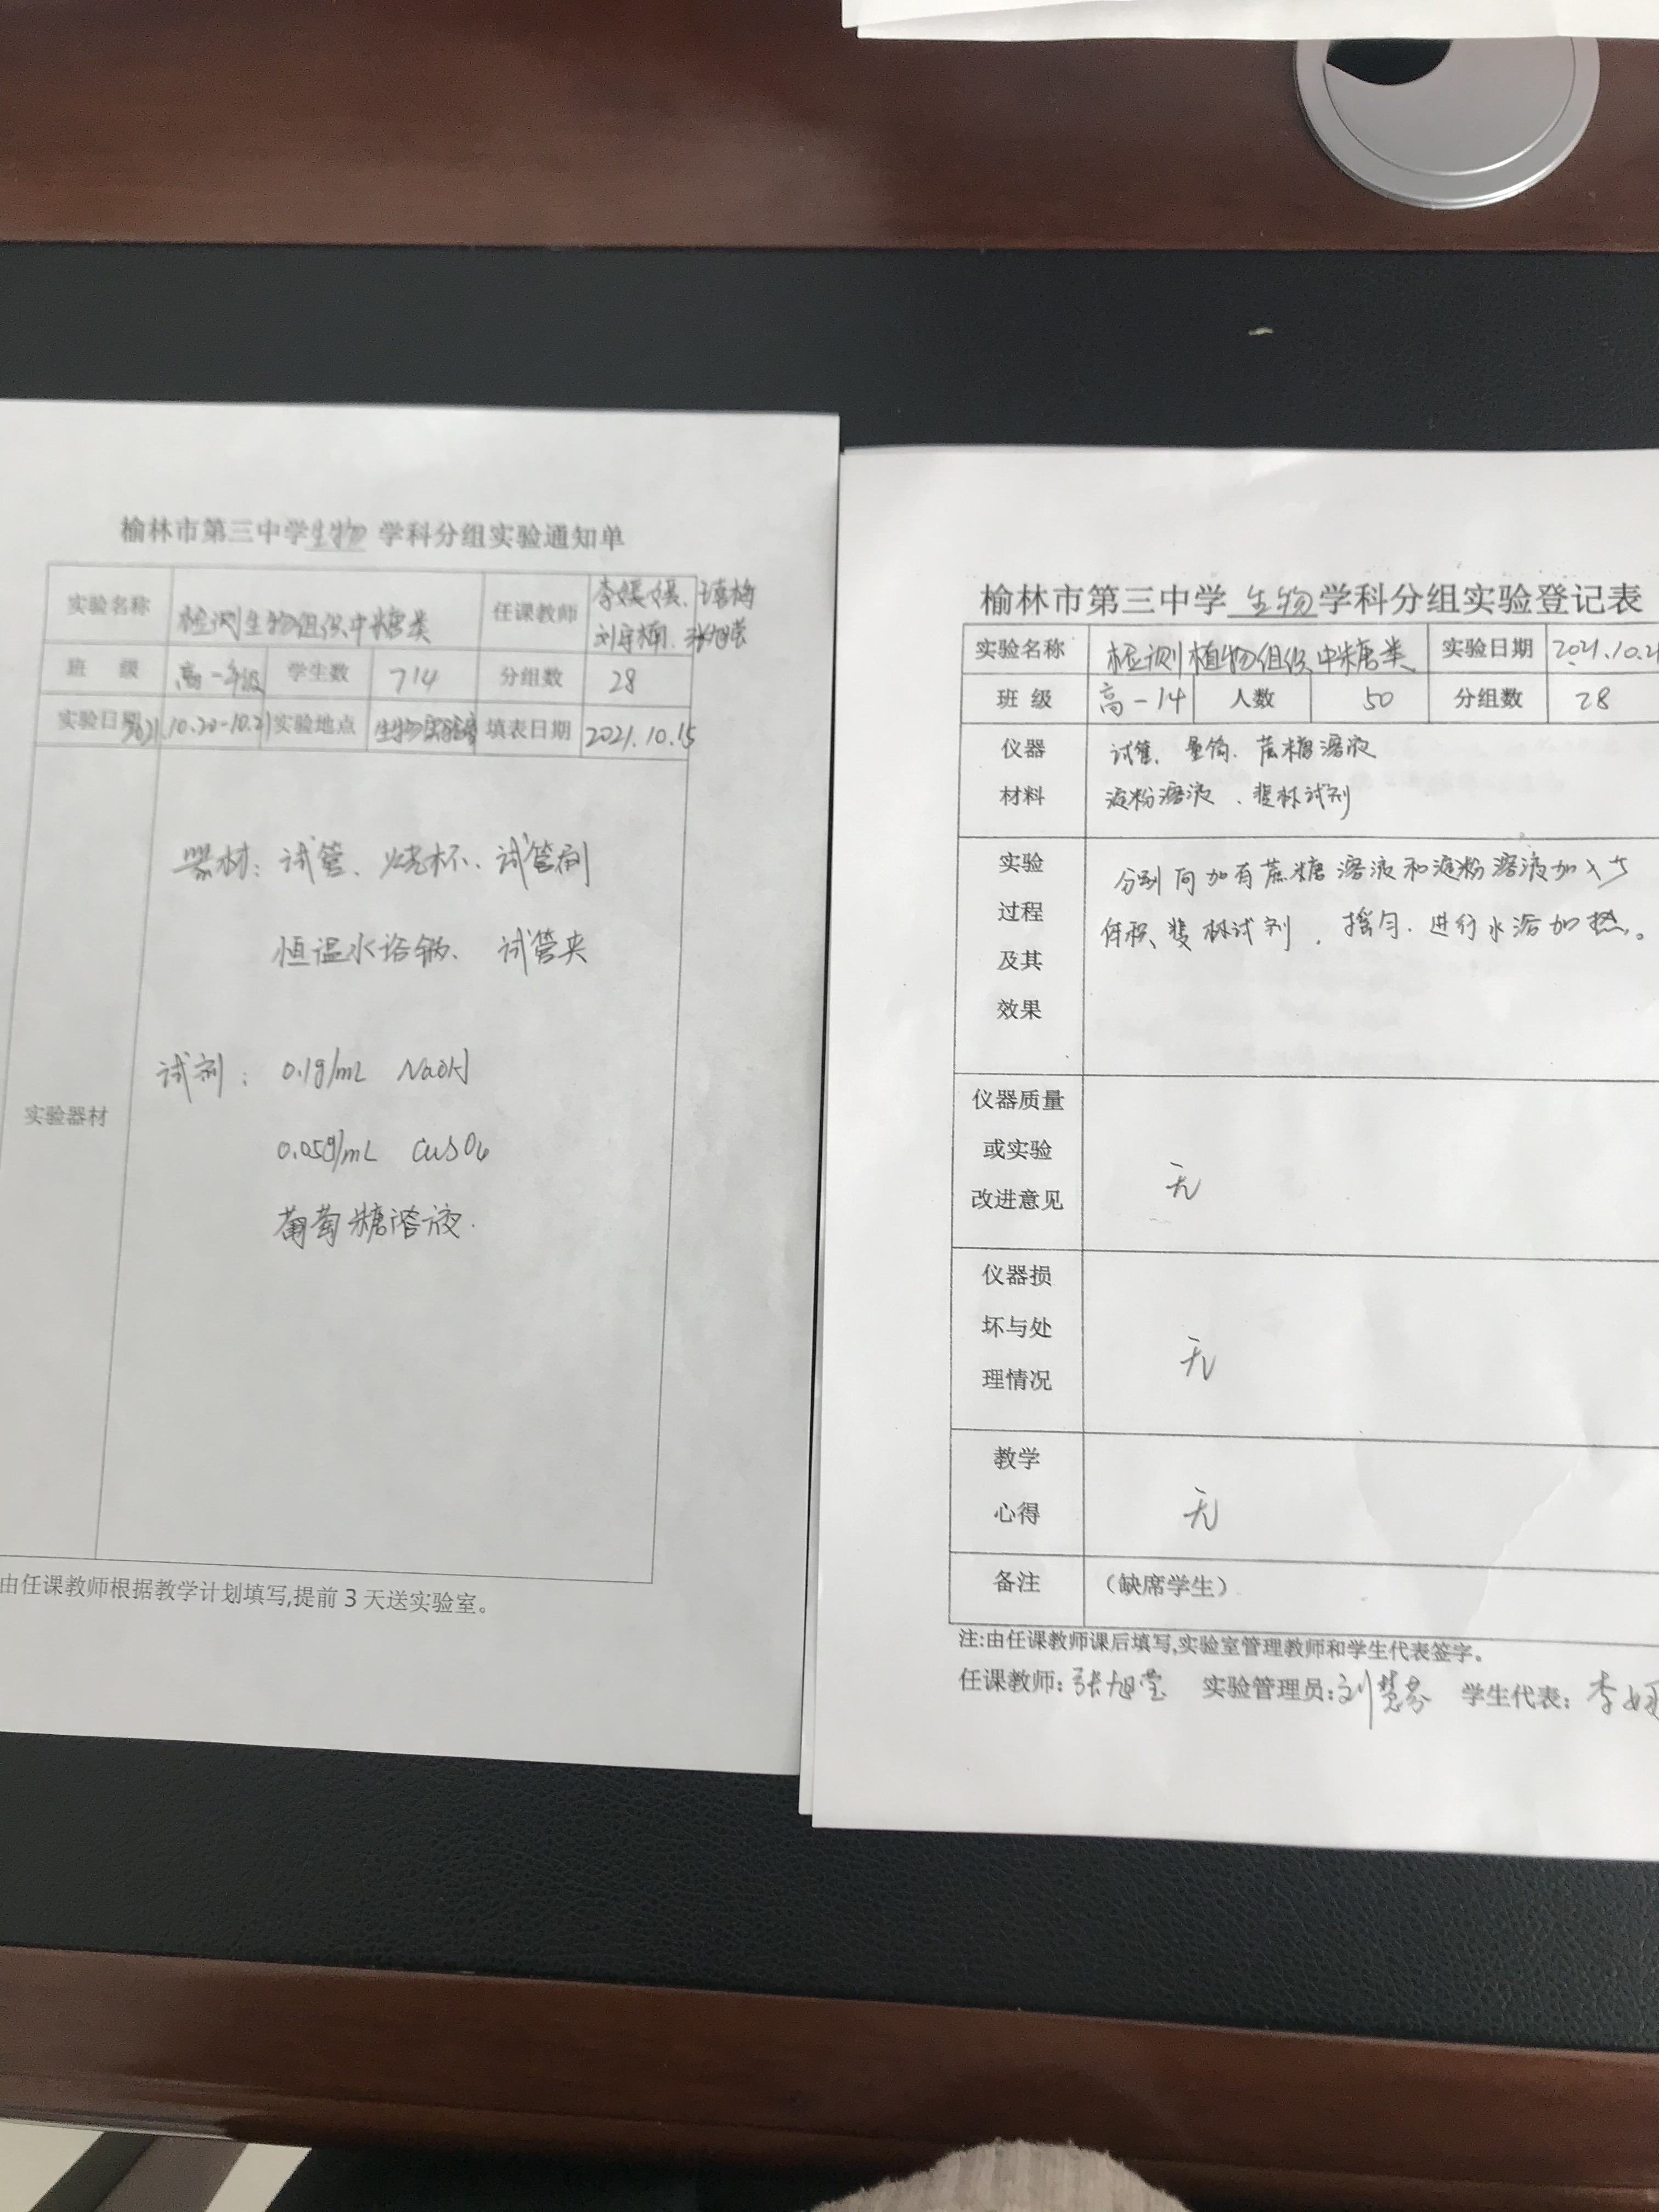 榆林市第三中学生物 学科分组实验通知单
实验名称 检测生物组织中糖类 任课教师 李媛媛、王喜梅
刘宇楠、张旭莹
班 级 高一年级 学生数 714 分组数 28
实验日期 2021.10.20-10.21 实验地点 生物实验室 填表日期 2021.10.15
实验器材
器材: 试管、烧杯、试管刷
恒温水浴锅、 试管夹
试剂: 0.1g/mL NaOH
0.05g/mL CuSO4
葡萄糖溶液.
由任课教师根据教学计划填写,提前 3 天送实验室。
榆林市第三中学 生物 学科分组实验登记表
实验名称 检测植物组织中糖类 实验日期 2021.10.2
班 级 高一14 人数 50 分组数 28
仪器 试管、量筒、蔗糖溶液
材料 淀粉溶液、斐林试剂
实验
过程
及其
效果
分别向加有蔗糖溶液和淀粉溶液加入
体积、斐林试剂,摇匀.进行水浴加热。
仪器质量
或实验
改进意见
无
仪器损
坏与处
理情况
无
教学
心得
无
备注 (缺席学生)
注:由任课教师课后填写,实验室管理教师和学生代表签字。
任课教师: 张旭莹 实验管理员: 刘慧芬 学生代表: 李